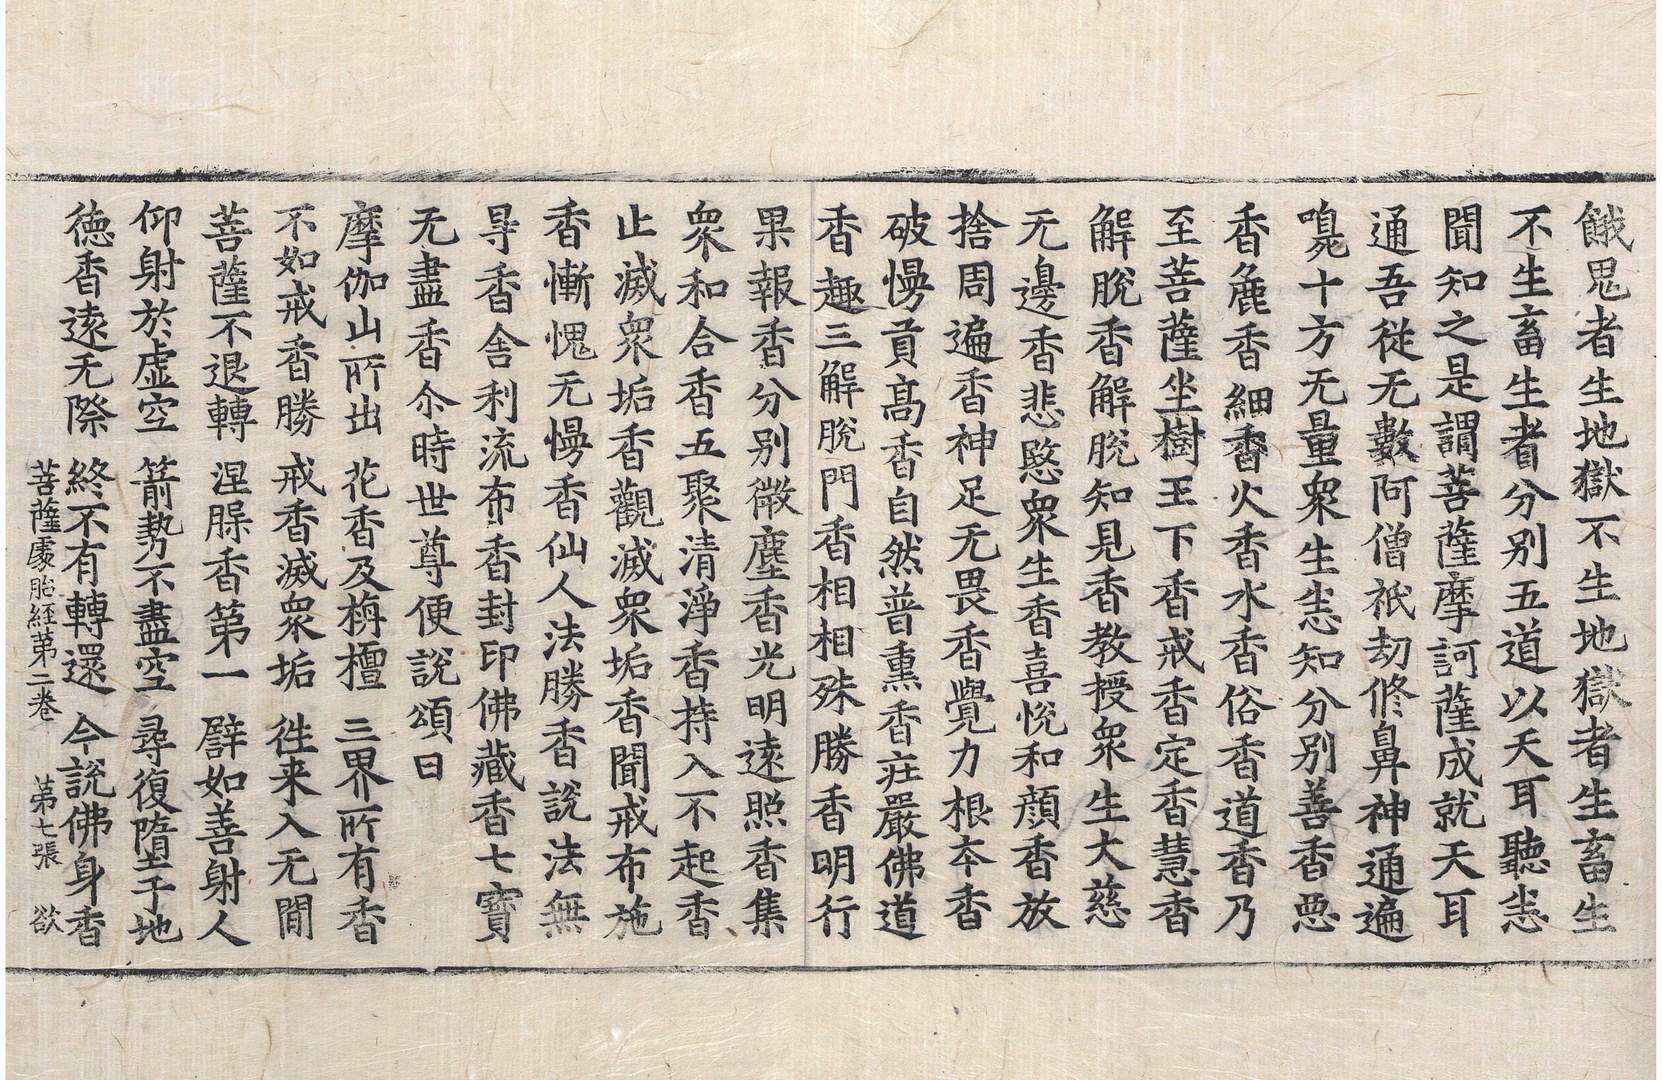 餓鬼者生地獄不生地獄者生畜生
不生畜生者分别五道以天耳聽悉
聞知之是謂菩薩摩訶薩成就天耳
通吾從无數阿僧祇劫修鼻神通遍
嗅十方无量衆生悉知分别善香惡
香麁香細香火香水香俗香道香乃
至菩薩坐樹王下香戒香定香慧香
解脫香解脫知見香教授衆生大慈
无邊香悲愍衆生香喜悅和顔香放
捨周遍香神足无畏香覺力根夲香
破慢貢高香自然普熏香莊嚴佛道
香趣三解脫門香相相殊勝香明行
果報香分别微塵香光明遠照香集
衆和合香五聚清淨香持入不起香
止滅衆垢香觀滅衆垢香聞戒布施
香慚愧无慢香仙人法勝香說法無
㝵香舍利流布香封印佛藏香七寶
无盡香尒時世尊便說頌曰
摩伽山所出 花香及栴檀 三界所有香
不如戒香勝 戒香滅衆垢 徃来入无閒
菩薩不退轉 涅槃香第一 譬如善射人
仰射於虛空 箭勢不盡空 尋復墮于地
德香遠无際 終不有轉還 今說佛身香
菩薩處胎經第二卷 第七張 欲